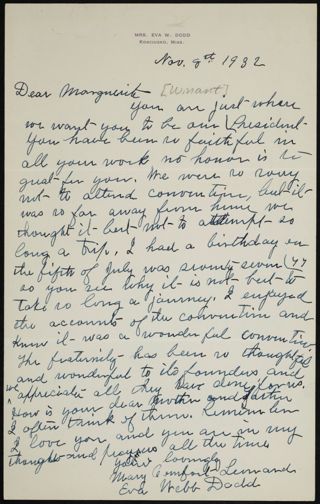 MRS. EVA W. DODD
KOSCIUSKO, MISS.
Nov. 9th 1932
Dear Marguerite [Winant]
You are just where
we want you to be our President
You have been so faithful in
all your work no honor is to
great for you. We were so sorry
not to attend convention, but it
was so far away from home we
thought it best not to attempt so
long a trip. I had a birthday on
the fifth of July was seventy seven (77
so you see why it is not best to
take so long a journey. I enjoyed
the accounts of the convention and
know it was a wonderful convention
The fraternity has been so thoughtful
and wonderful to its founders and
we appreciate all they have done for us.
How is your dear Mother and Father
I often think of them. Remember
I love you and you are in my
thoughts and prayers all the time
Your lovingly
Mary Comfort Leonard
Eva Webb Dodd